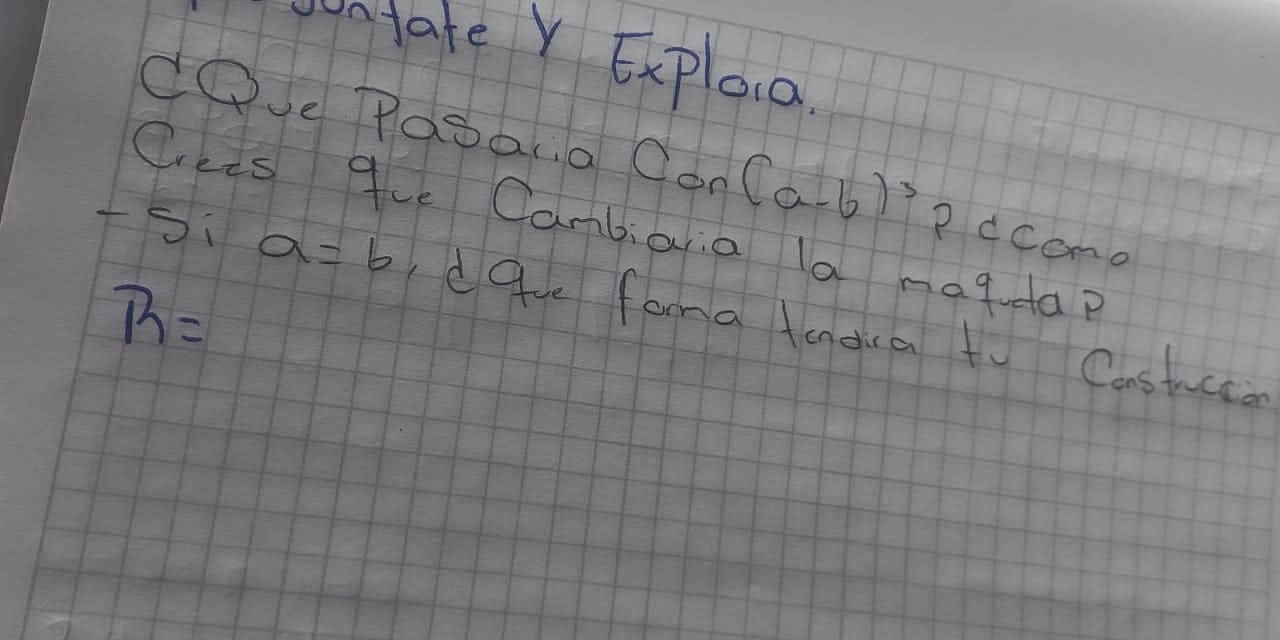 y Explora.
¿Que Pasaria Con (a-b)³? ¿Como
Crees que Cambiaria la maqueta?
- Si a=b, ¿que forma tendira tu Construccion
R=